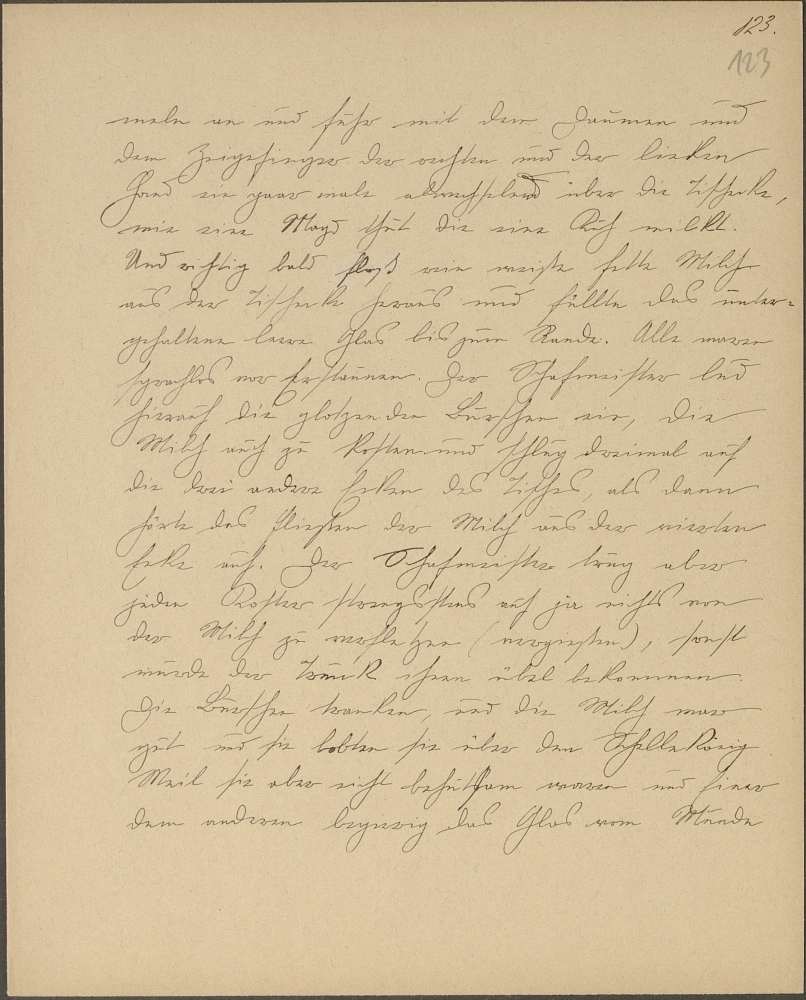 123.
123
meln an und fuhr mit dem Daumen und
dem Zeigefinger der rechten und der linken
Hand ein paar male abwechselnd über die Tischecke,
wie eine Magd thut die eine Kuh milkt.
Und richtig bald floß eine weiße fette Milch
aus der Tischecke heraus und füllte das unter-
gehaltene leere Glas bis zum Rande. Alle waren
sprachlos vor Erstaunen. Der Schafmeister lud
hierauf die glotzenden Burschen ein, die
Milch auch zu kosten und schlug dreimal auf
die drei andere Ecken des Tisches, als dann
hörte das Fließen der Milch aus der vierten
Ecke auf. Der Schafmeister trug aber
jeden Koster strengstens auf ja nichts von
der Milch zu verfletzen (vergießen), sonst
würde der Trunk ihnen übel bekommen.
Die Burschen tranken, und die Milch war
gut und sie lobten sie über den Schellekönig
Weil sie aber nicht behutsam waren und Einer
dem anderen begierig das Glas vom Munde